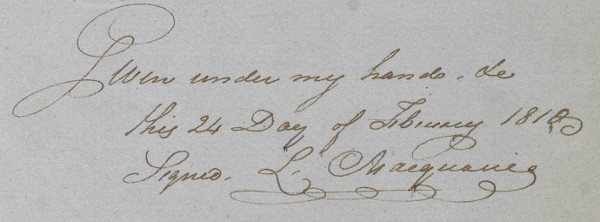 Given under my hand. &c
this 24 Day of February 1810
Signed. L. Macquarie